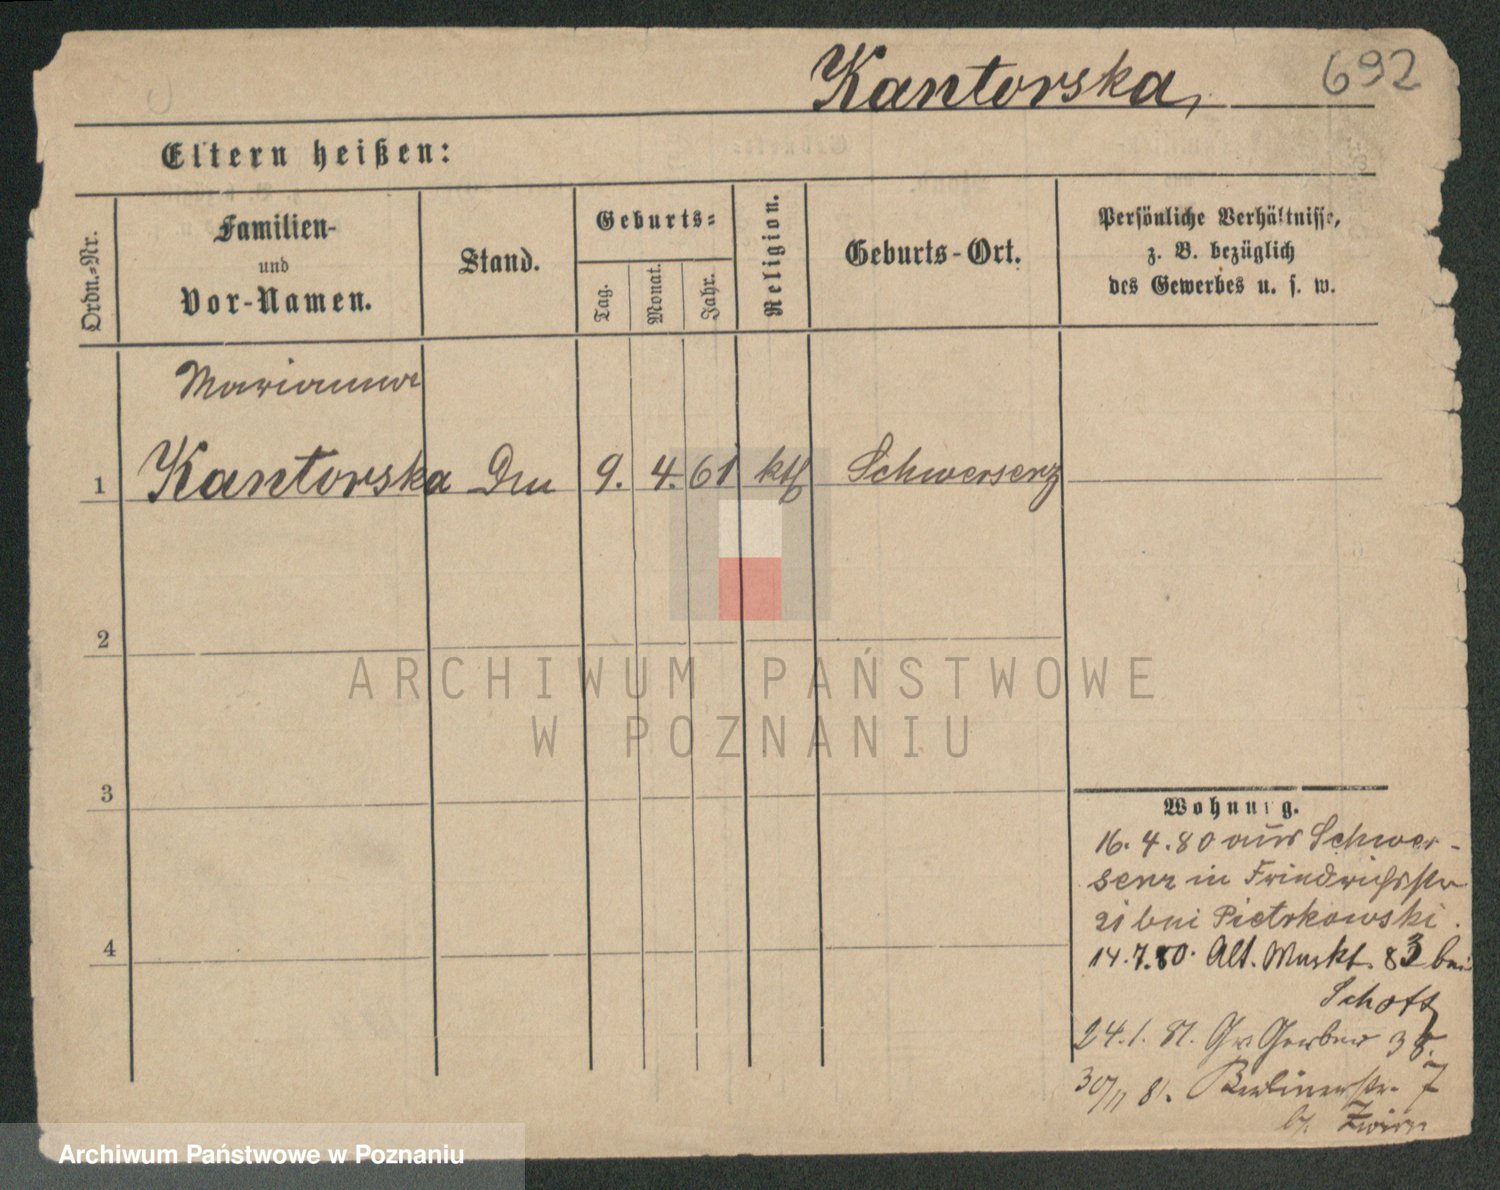 Kantorska,
692
Eltern heißen:
Ordn.=Nr.
Familien-
und
Vor-Namen.
Stand.
Geburts=
Tag.
Monat.
Jahr.
Religion.
Geburts-Ort.
Persönliche Verhältnisse,
z. B. bezüglich
des Gewerbes u. s. w.
Marianna
1 Kantorska 9. 4. 61 kth Schwersenz
2
3
4
Wohnung.
16. 4. 80 aus Schwer-
senz in Friedrichsstr
21 bei Pietrkowski.
14.7.80. Alt. Markt. 83 bei
24.1. 81. Gr. Gerber 38.
30/11 81. Berlinerstr. 7
ARCHIWUM PAŃSTWOWE
W POZNANIU
Archiwum Państwowe w Poznaniu